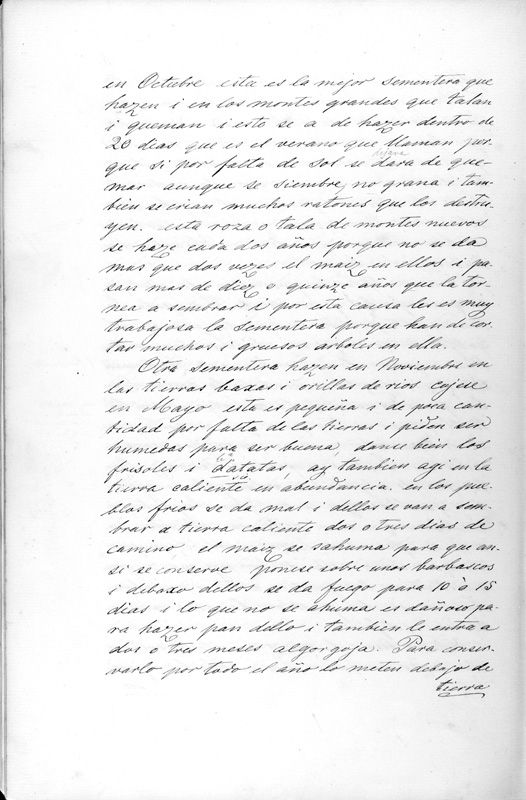 en Octubre esta es la mejor sementera que
hazen i en los montes grandes que talan
i queman i esto se a de hazer dentro de
20 dias que es el verano que llaman por-
dejara
que si por falta de sol se dara de que-
mar aunque se siembre, no grana i tam-
bien se crian muchos ratones que los distru-
yen. esta roza o tala de montes nuevos
se haze cada dos años porque no se da
mas que dos vezes el maiz en ellos i pa-
san mas de diez o quinze años que la tor-
nea a sembrar i por esta causa les es muy
trabajosa la sementera porque han de cor-
tar muchos i gruesos arboles en ella.
Otra sementera hazen en Noviembre en
las tierras baxas i orillas de rios cojese
en Mayo esta es pequeña i de poca can-
tidad por falta de las tierras i piden ser
humedas para ser buena, danse bien los
frisoles i datatas, ay tambien agi en la
tierra caliente en abundancia. en los pue-
blos frios se da mal i dellos se van a sem-
brar a tierra caliente dos o tres dias de
camino, el maiz se sahuma para que an-
si se conserve ponese sobre unos barbascos
i debaxo dellos se da fuego para 10 ò 15
dias i lo que no se ahuma es dañoso pa-
ra hazer pan dello i tambien le entra a
dos o tres meses algorgoja. Para conser-
varlo por todo el año lo meten debajo de
tierra